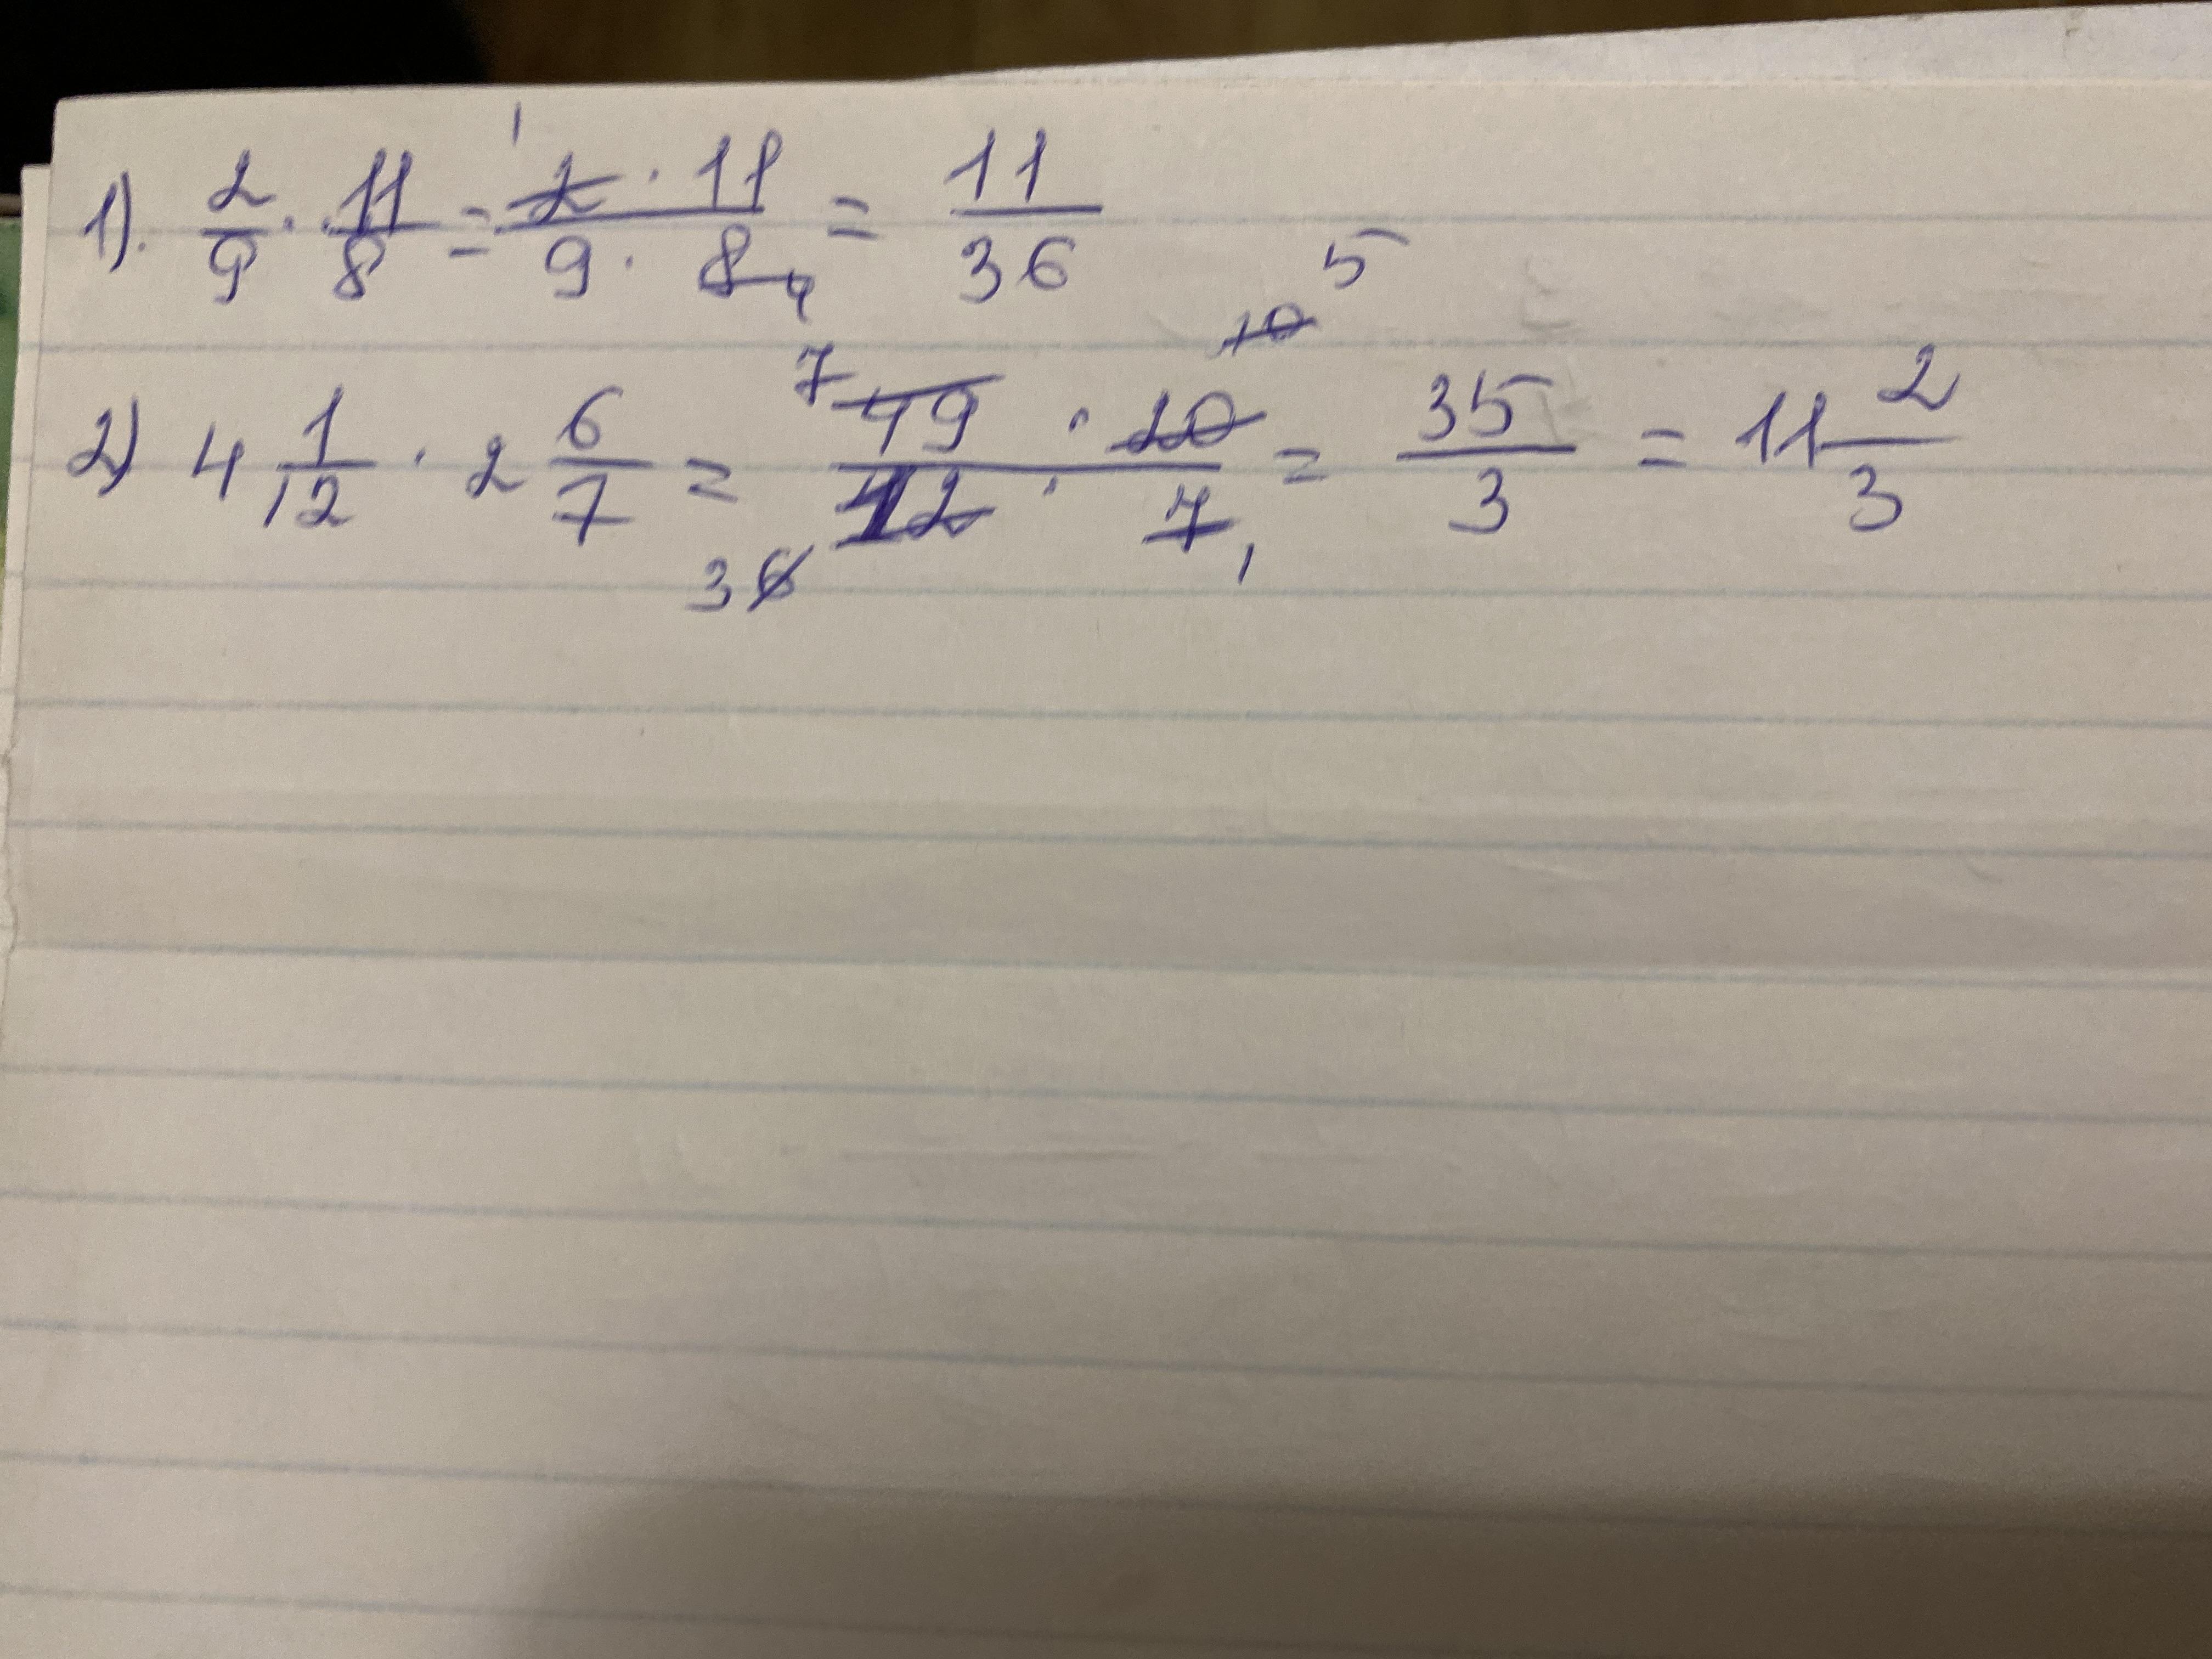 1). 2/9 · 11/8 = 2 · 11 / 9 · 8 = 11/36
2) 4 1/12 · 2 6/7 = 49 · 20 / 12 · 7 = 35/3 = 11 2/3